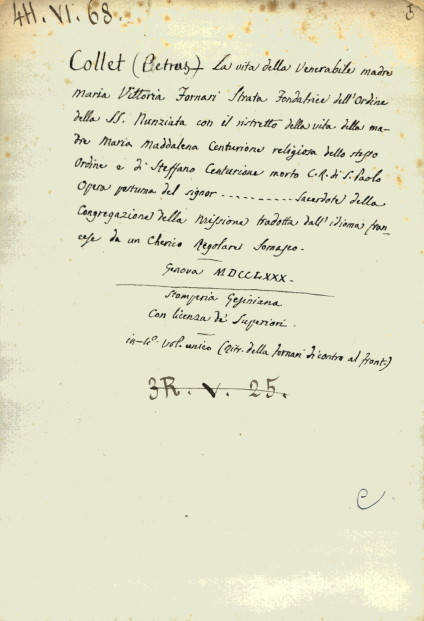 4H. VI. 68.
Collet (Petrus) La vita della Venerabile madre
Maria Vittoria Fornari Strata Fondatrice dell'Ordine
della SS. Nunziata con il ristretto della vita della ma-
dre Maria Maddalena Centurione religiosa dello stesso
Ordine e di Steffano Centurione morto C.R. di S. Paolo
Opera postuma del signor .......... Sacerdote della
Congregazione della Missione tradotta dall'idioma fran-
cese da un Cherico Regolare Somasco.
Genova MDCCLXXX.
Stamperia Gesiniana
Con licenza de' Superiori.
in-4°. vol. unico (Ritr. della Fornari di contro al front.)
3R. V. 25.